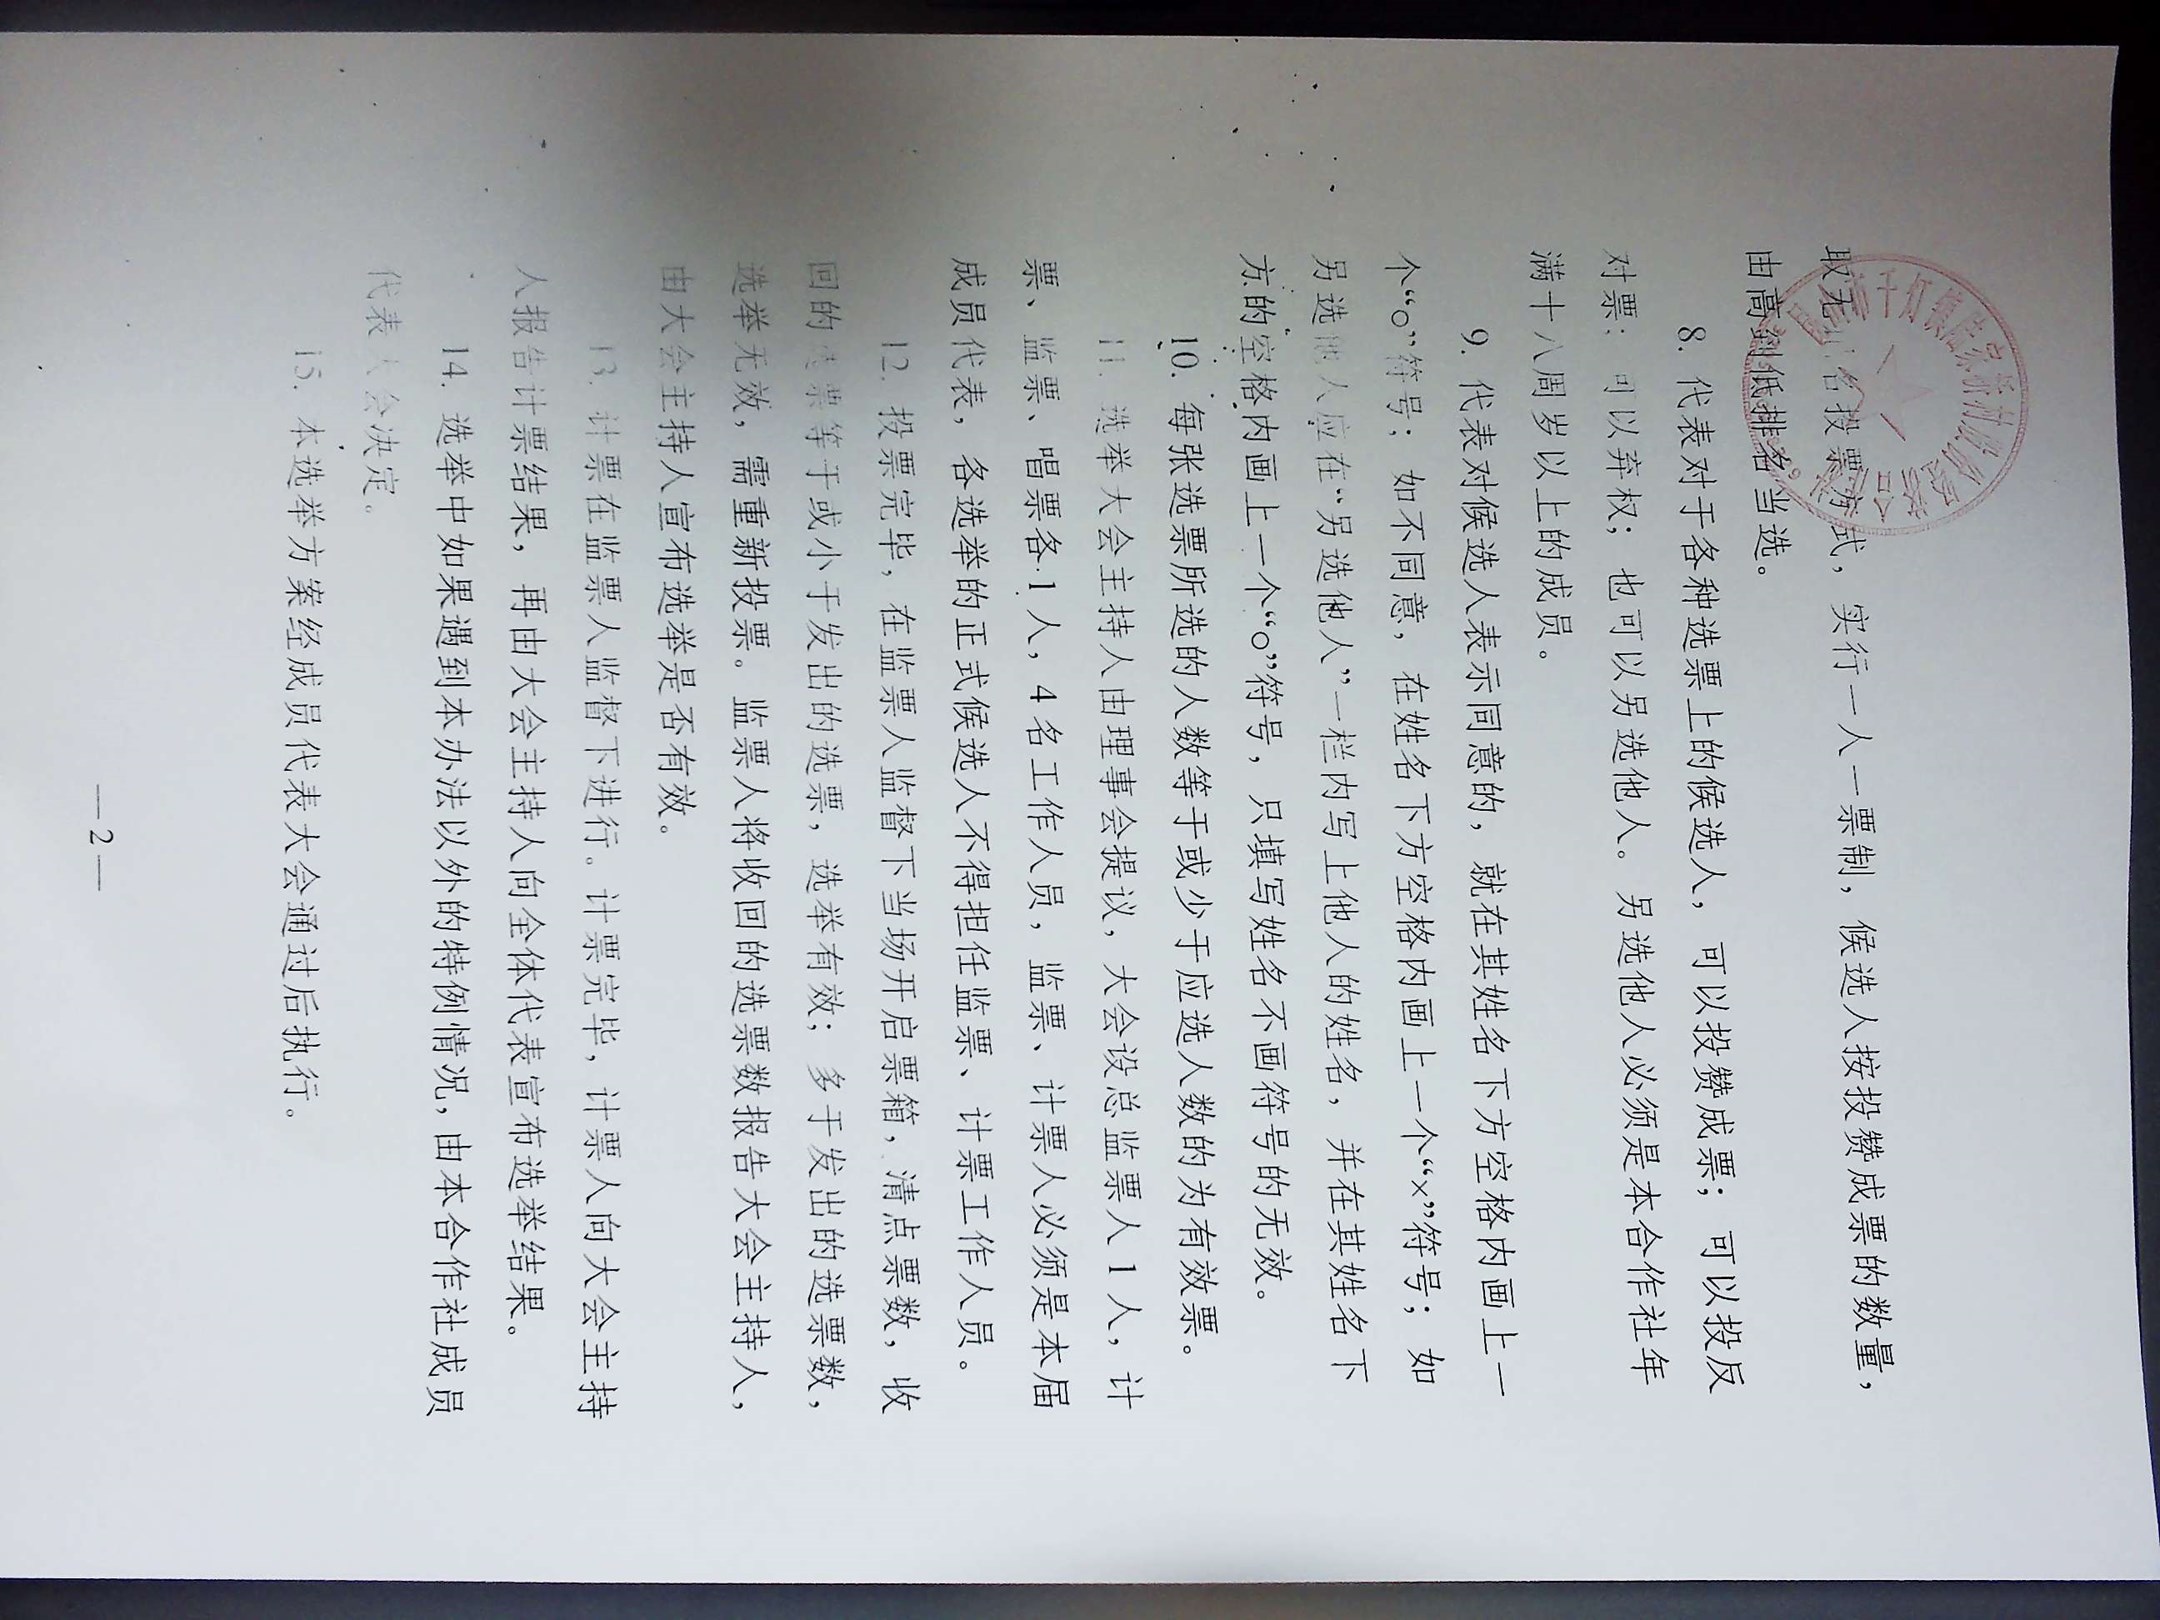 取无记名投票方式，实行一人一票制，候选人按投赞成票的数量，
由高到低排名当选。
8. 代表对于各种选票上的候选人，可以投赞成票；可以投反
对票；可以弃权；也可以另选他人。另选他人必须是本合作社年
满十八周岁以上的成员。
9. 代表对候选人表示同意的，就在其姓名下方空格内画上一
个“○”符号；如不同意，在姓名下方空格内画上一个“×”符号；如
另选他人应在“另选他人”一栏内写上他人的姓名，并在其姓名下
方的空格内画上一个“○”符号，只填写姓名不画符号的无效。
10. 每张选票所选的人数等于或少于应选人数的为有效票。
11. 选举大会主持人由理事会提议，大会设总监票人 1 人，计
票、监票、唱票各 1 人，4 名工作人员，监票、计票人必须是本届
成员代表，各选举的正式候选人不得担任监票、计票工作人员。
12. 投票完毕，在监票人监督下当场开启票箱，清点票数，收
回的选票等于或小于发出的选票，选举有效；多于发出的选票数，
选举无效，需重新投票。监票人将收回的选票数报告大会主持人，
由大会主持人宣布选举是否有效。
13. 计票在监票人监督下进行。计票完毕，计票人向大会主持
人报告计票结果，再由大会主持人向全体代表宣布选举结果。
14. 选举中如果遇到本办法以外的特例情况，由本合作社成员
代表大会决定。
15. 本选举方案经成员代表大会通过后执行。
—2—